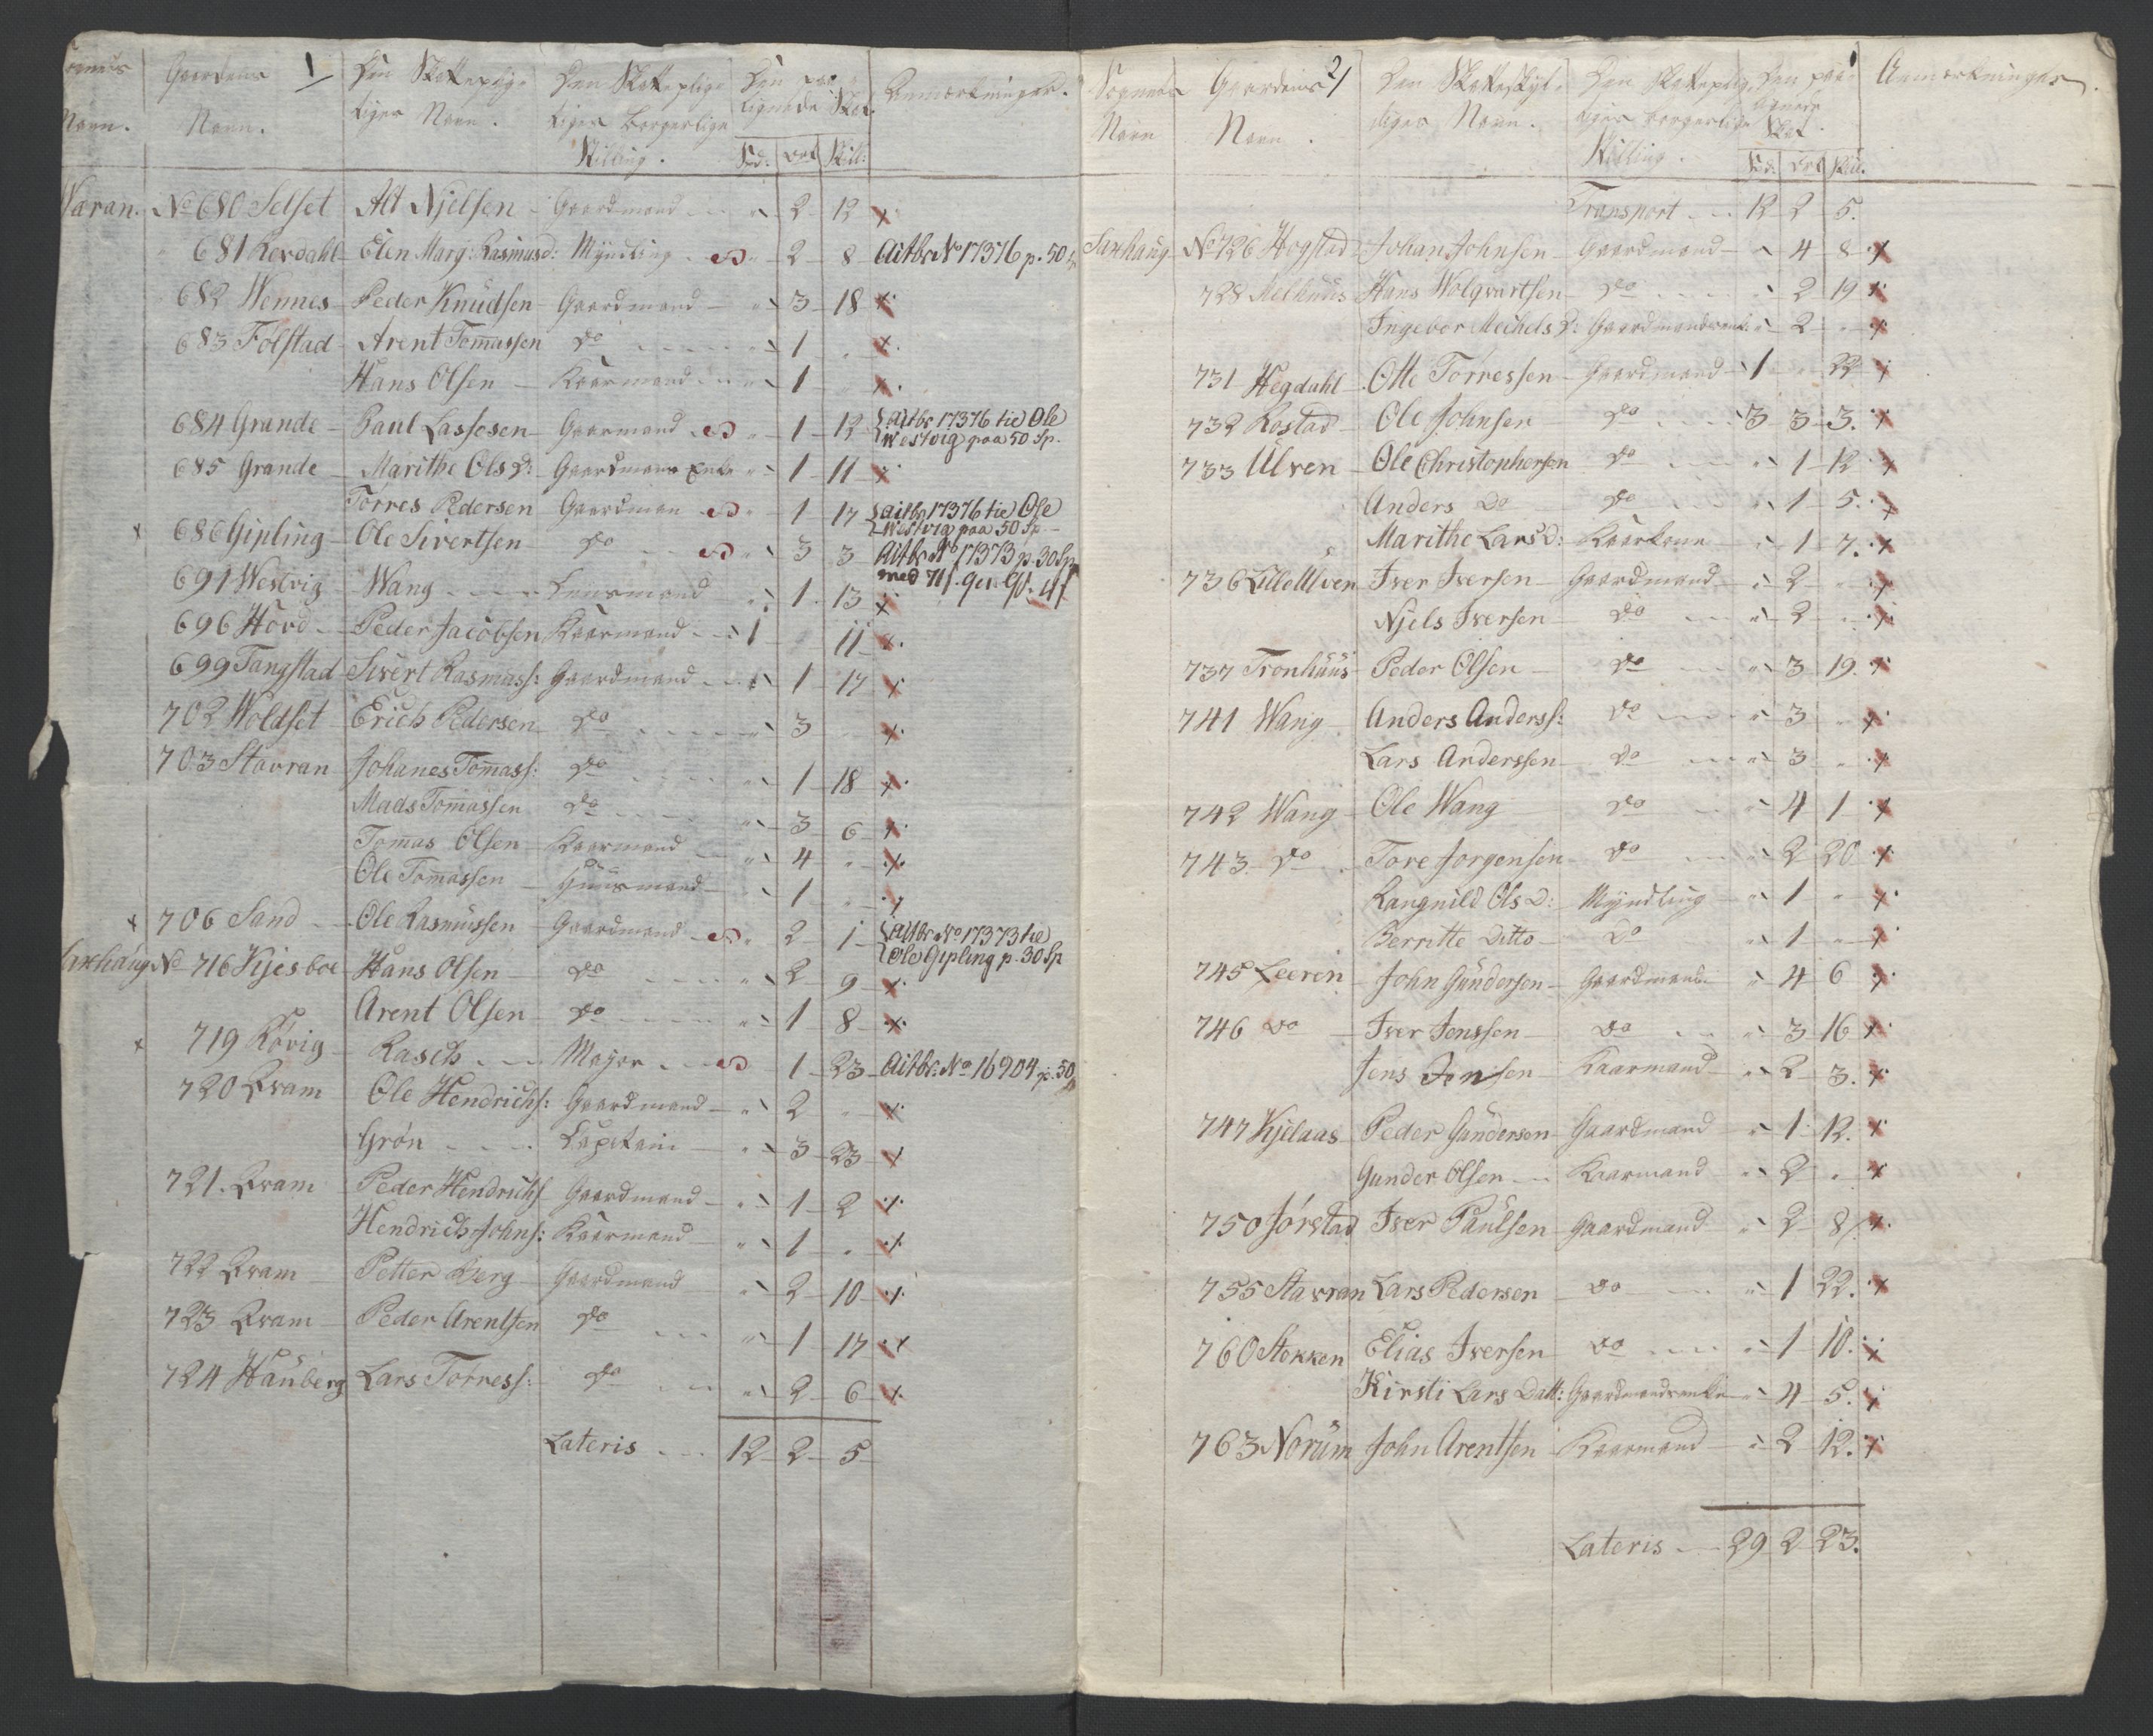 Navn.
Gaardens 1/
Navn.
Den Skattepligtiger Navn.
Den Skattepligtiger borgerlige Stilling.
Den paalignede Skat.
Spd: Ort Skill:
Anmærkninger.
Waran. No 680 Selset Alt Njelsen Gaardmand " 2 12 x
681 Rerdahl Elen Marg: Rasmusd: Myndling " 2 8 Aitbr No 17376 p. 50
682 Wennes Peder Knudsen Gaardmand " 3 18 x
683 Følstad Arent Tomassen do " 1 " x
Hans Olsen Kaarmand " 1 " x
684 Grande Paul Lassesen Gaarmand " 1 12 aitbr 17376 tie Ole
Westvig paa 50 Sp.
685 Grande Marithe Ols D: Gaardmans Enke " 1 11 x
Torres Pedersen Gaardman " 1 17 aitbr 17376 tie Ole
Westvig paa 50 Sp.
x 686 Gipling Ole Sivertsen do " 3 3 Aitbr No 17373 p. 30 Sp
691 Westvig Wang Lensmand " 1 13 x
696 Hovd Peder Jacobsen Kaarmand 1 11 x
699 Tangstad Sivert Rasmuss: Gaardmand " 1 17 x
702 Woldset Erich Pedersen do " 3 " x
703 Stavran Johanes Tomass: do " 1 18 x
Mads Tomassen do " 3 6 x
Tomas Olsen Kaarmand " 4 " x
Ole Tomassen Huusmand " 1 " x
x 706 Sand Ole Rasmussen Gaardmand " 2 1 Aitbr No 17373 tie
Ole Gipling p. 30 Sp
No 716 Kjesboe Hans Olsen do " 2 9 x
Arent Olsen do " 1 8 x
x 719 Rørig Rasch Mayor 1 23 Aitbr. No 16904 p. 50
720 Qvam Ole Hendrichs: Gaardmand " 2 " x
Grøn Capitain " 3 23 x
721. Qvam Peder Hendrichs Gaardmand " 1 2 x
Hendrich Johns: Kaarmand " 1 " x
722 Qvam Petter Berg Gaardmand " 2 10 x
723 Qvam Peder Arentsen do " 1 17 x
724 Hauberg Lars Torress: do " 2 6 x
Lateris 12 2 5
Sognets Navn
Gaardens 2/
Navn.
Den Skatteskyldiger Navn.
Den Skattepligtiger borgerlige Stilling.
Den paalignede Skat.
Spd. Ort Skill.
Anmærkninger.
Transport 12 2 5.
Saxhaug No 726 Hogstad Johan Johnsen Gaardmand " 4 8 x
728 Melhuus Hans Wolqvartsen do " 2 19 x
Ingebor Mechels D: Gaardmandsenk: " 2 " x
731 Hegdahl Otte Torressen Gaardmand 1 " 22 x
732 Rostad Ole Johnsen do 3 3 3. x
733 Ulven Ole Christophersen do " 1 12 x
Anders Do do " 1 5. x
Marithe Lars D: Kaarkone " 1 7. x
736 Lille Ulven Iver Iversen Gaardmand " 2 " x
Njels Iversen do " 2 " x
737 Tronhuus Peder Olsen do " 3 19. x
741 Wang Anders Anderss: do " 3 " x
Lars Anderssen do " 3 " x
742 Wang Ole Wang do " 4 1 x
743 do Tore Jorgensen do " 2 20 x
Rangnild Ols D: Myndling " 1 " x
Berritte Ditto do " 1 " x
745 Leerin John Gundersen Gaardmand " 4 6 x
746 do Iver Jenssen do " 3 16 x
Jens Jensen Kaarmand " 2 3. x
747 Kjelaas Peder Gundersen Gaardmand " 1 12. x
Gunder Olsen Kaarmand " 2 " x
750 Jørstad Iver Paulsen Gaardmand " 2 8 x
755 Stavran Lars Pedersen do " 1 22. x
760 Stokken Elias Iversen do " 1 10. x
Kirsti Lars Datt: Gaardmandsenke " 4 5. x
763 Norum John Arentsen Kaarmand " 2 12. x
Lateris 29 2 23.